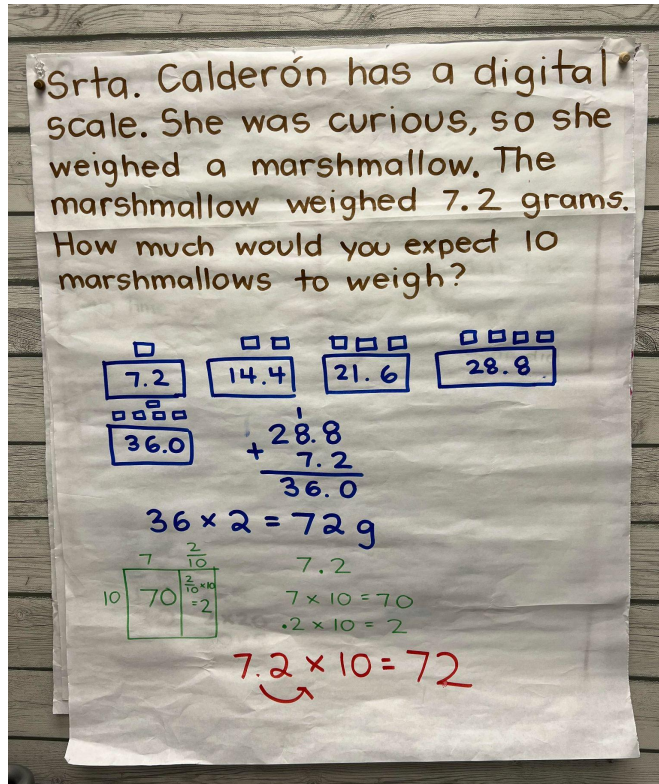 Srta. Calderón has a digital
scale. She was curious, so she
weighed a marshmallow. The
marshmallow weighed 7.2 grams.
How much would you expect 10
marshmallows to weigh?
7.2 14.4 21.6 28.8
36.0
1
28.8
+ 7.2
36.0
36 × 2 = 72 g
7 2/10
10 70 2/10 × 10
= 2
7.2
7 × 10 = 70
.2 × 10 = 2
7.2 × 10 = 72